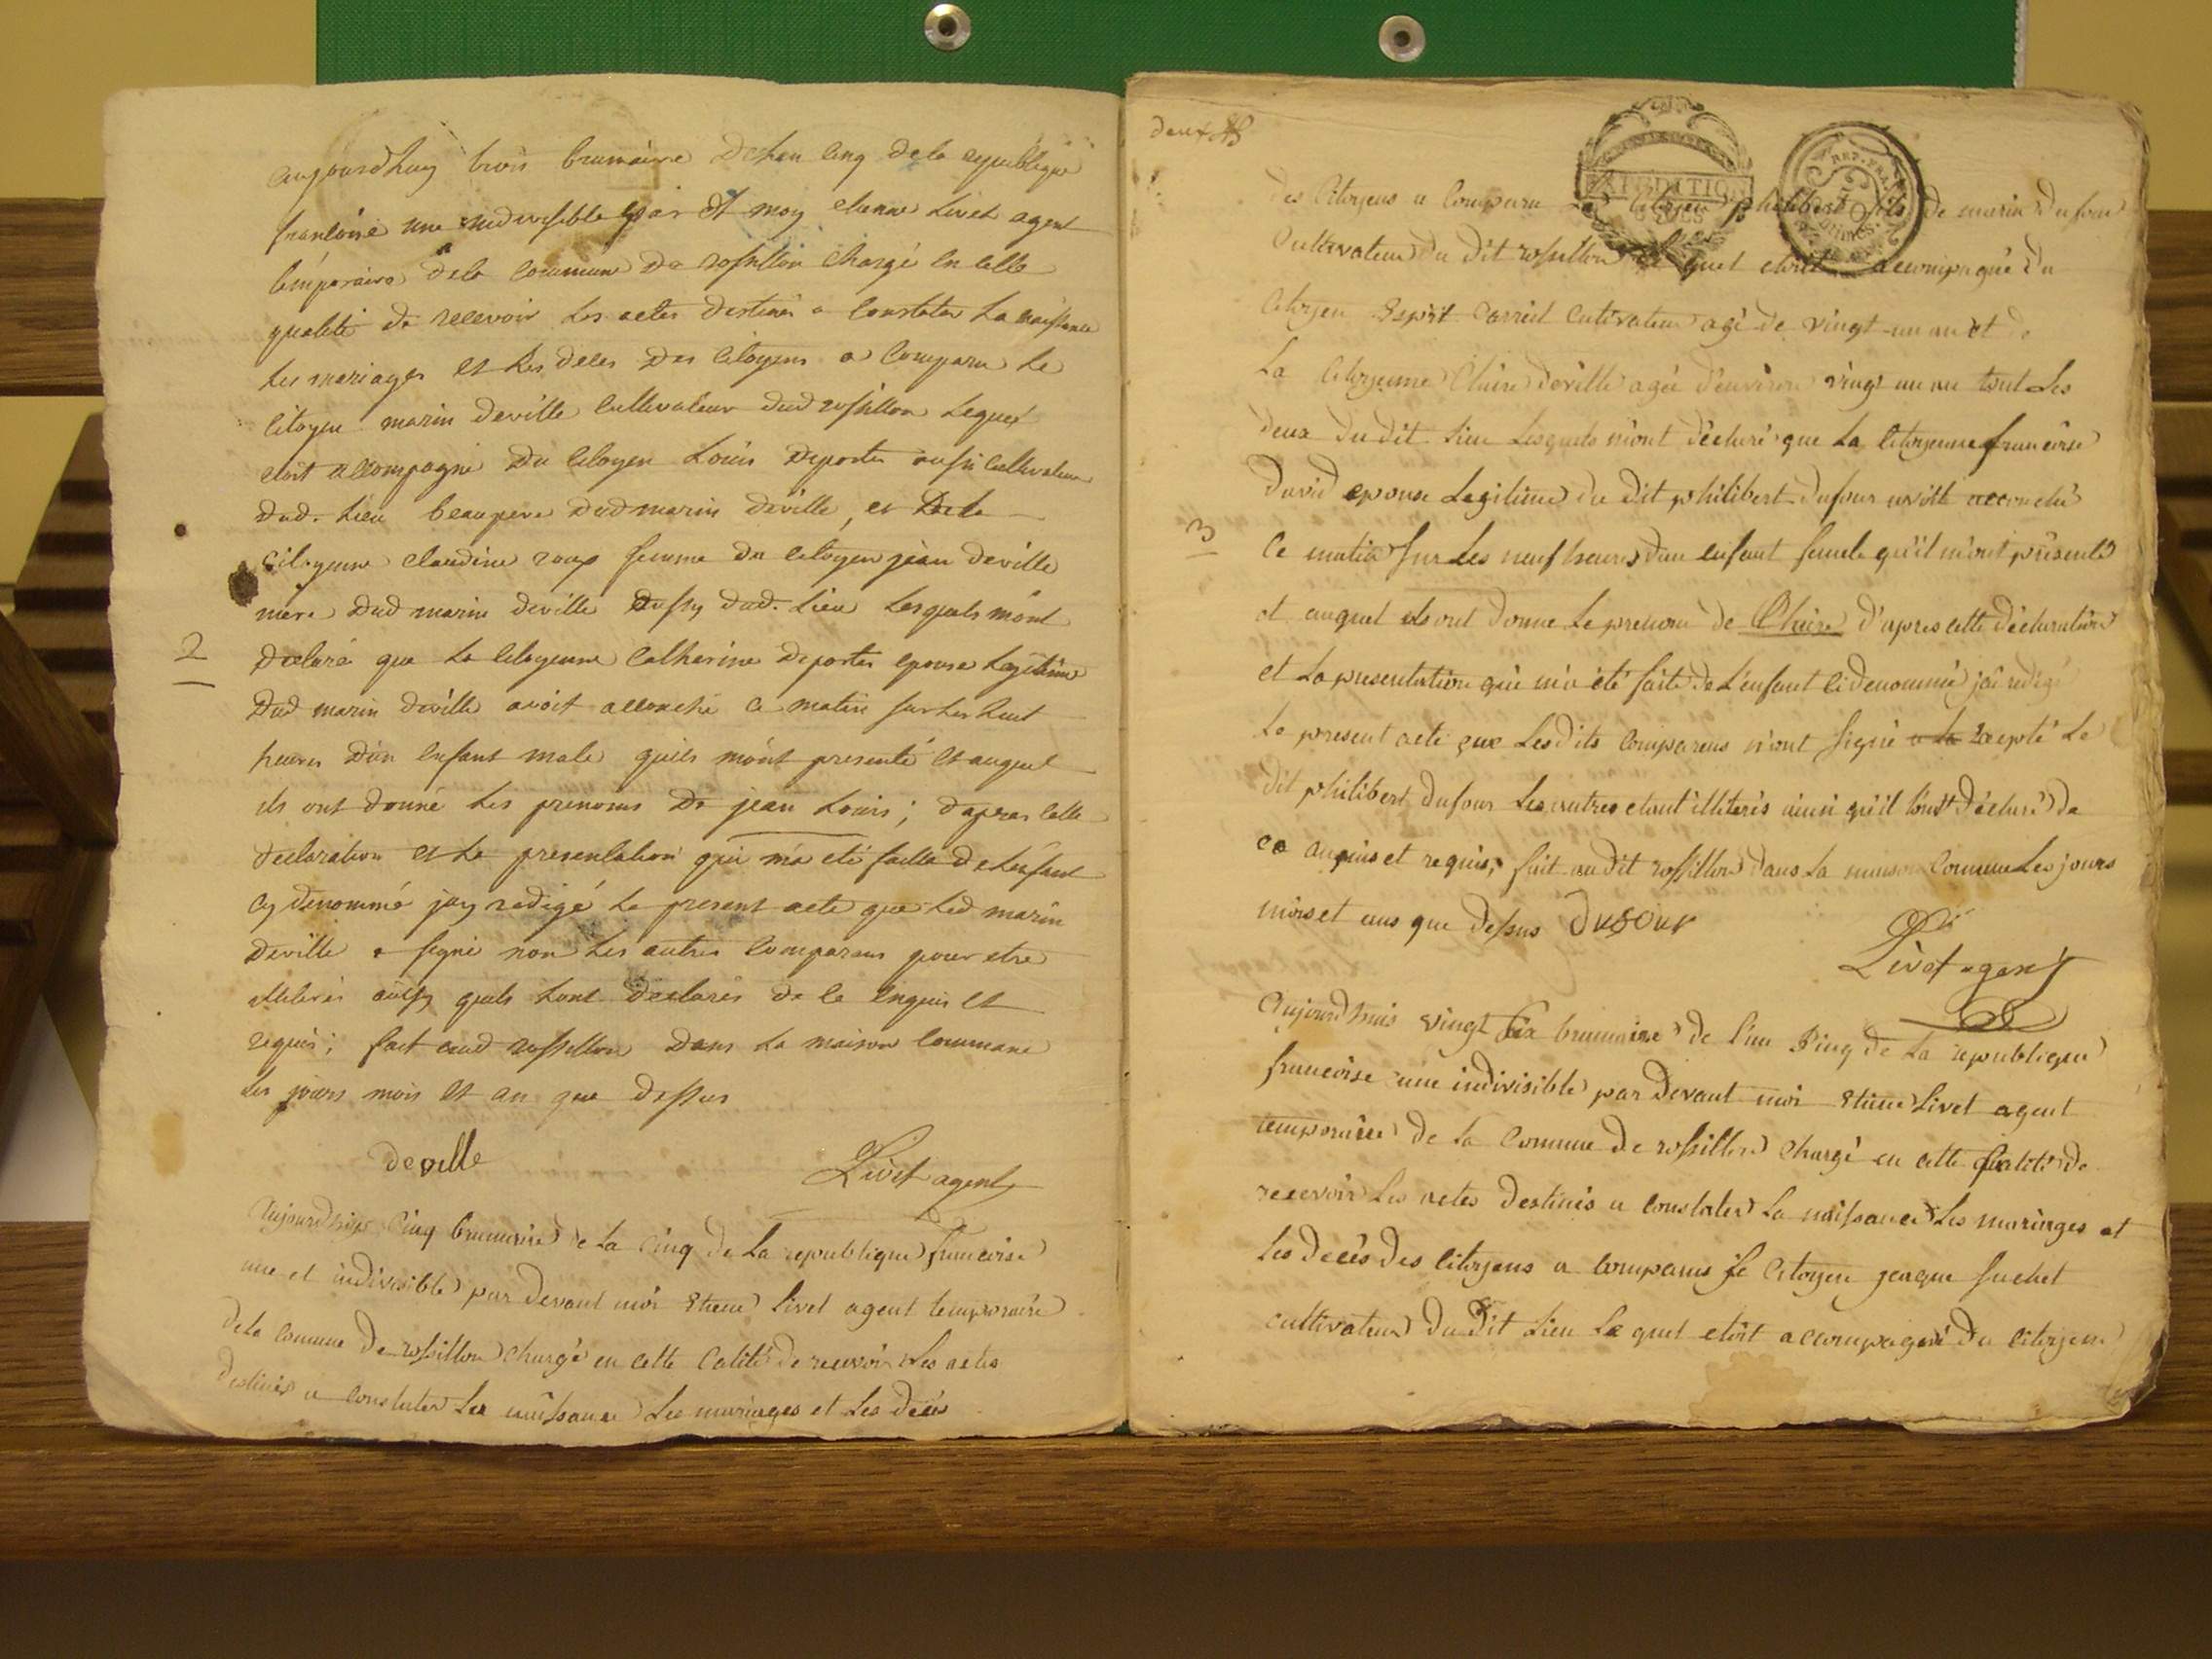 aujourdhuy trois brumaire delan cinq dela republique
françoise une indivisible par dt moy etienne Livet agent
temporaire dela commune de rossillon chargé en cette
qualité de recevoir les actes destinés a constater la naissance
les mariages et les deces des citoyens a comparu le
citoyen marin deville cultivateur dud rossillon lequel
etoit accompagné du citoyen Louis deportes aussi cultivateur
dud. lieu beaupere dud marin deville, et de la
citoyenne claudine roux femme du citoyen jean deville
mere dud marin deville dud. lieu lesquels mont
2
declaré que la citoyenne catherine deportes epouse legitime
dud marin deville avoit accouché ce matin sur les huit
heures dun enfant male quils mont presenté et auquel
ils ont donné les prenoms de jean Louis; dapres cette
declaration et la presentation qui ma eté faitte de lenfant
cy denommé jay redigé le present acte que led marin
deville a signé non les autres comparans pour etre
illiterés quils lont declarés de ce enquis et
requis; fait aud rossillon dans la maison commune
les jours mois et an que dessus
deville
Livet agent
Aujourdhuis Cinq brumaire de la Cinq de la republique francoise
une et indivisible par devant moi Etiene Livet agent temporaire
dela comune de rossillon chargé en cette calité de recevoir les actes
destinés a constater la naissance les mariages et les décès
deux
des citoyens a comparu le citoyen philibert fils de marin dufour
EXPEDITION
REP. FRA.
cultivateur du dit rossillon le quel etoit accompagné du
citoyen Esprit cultivateur agé de vingt un an et de
la citoyenne Claire deville agée d'environ vingt un an tout les
deux du dit lieu lesquels m'ont déclaré que la citoyenne francoise
david epouse legitime du dit philibert dufour avoit accouché
3
ce matin sur les neuf heures d'un enfant femele qu'il m'ont présenté
et auquel ils ont donné le prenom de Claire d'apres cette déclaration
et la presentation qui m'a été faite de l'enfant ci denommé j'ai redigé
le present acte que lesdits comparans m'ont signé a la excepté le
dit philibert dufour les autres etant illiterés ainsi qu'il l'ont déclaré de
ce anquis et requis, fait au dit rossillon dans la maison comune les jours
mois et ans que dessus dufour
Livet agent
Aujourdhuis vingt six brumaire de l'an Cinq de la republique
francoise une indivisible par devant moi Etiene Livet agent
temporaire de la comune de rossillon chargé en cette qualité de
recevoir les actes destinés a constater la naissance les mariages et
les décès des citoyens a comparus le citoyen jacque suchet
cultivateur du dit lieu le quel etoit accompagné du citoyen